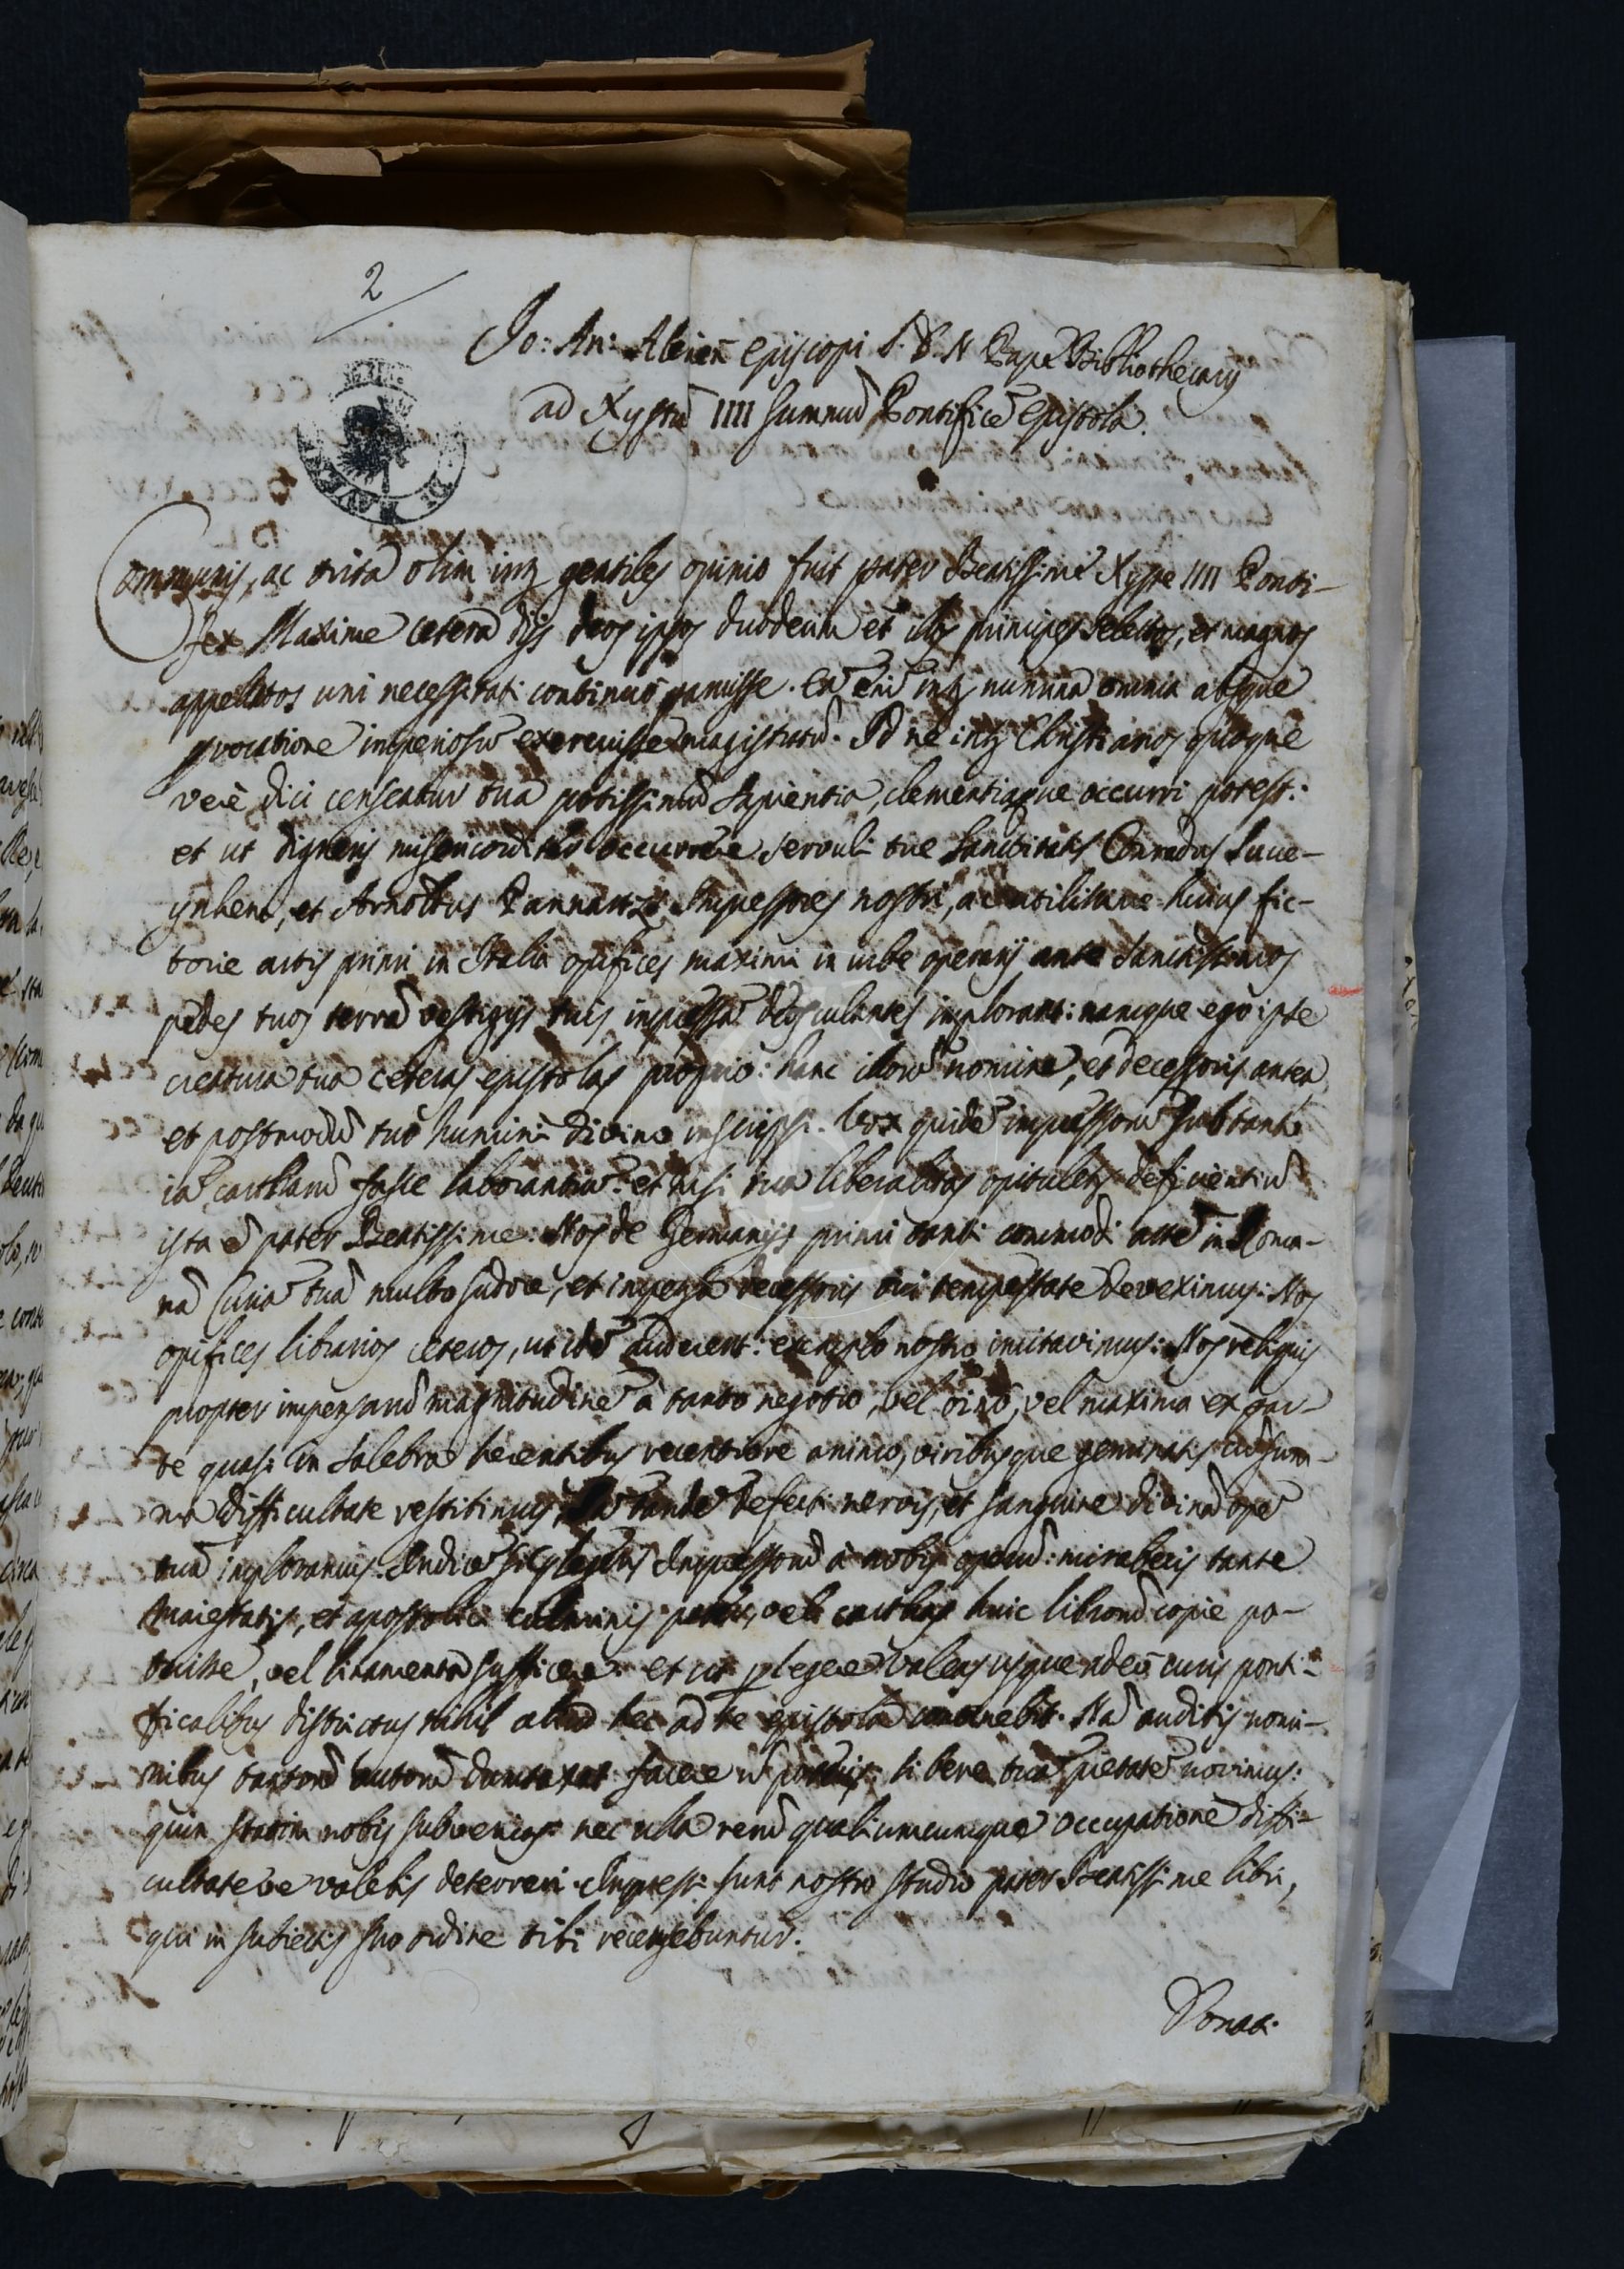 2
Jo: An: Alerien̄ episcopi S. D. N Pape Bibliothecarij
ad Xystū IIII summū Pontificē Epistola.
Communis, ac trita olim intʒ gentiles opinio fuit pater Beatissime Xyste IIII Ponti-
fex Maxime cetera dijs deos ipsos duodecim et illos principes selectos, et magnos
appellatos uni necessitati continuo paruisse. Eā enī intʒ numina omnia absque
provocatione imperiosū exercuisse magistratū. Id ne intʒ Christianos quoque
verè dici censeatur tua potissimū sapientia, clementiaque occurri potest:
et ut digneris misericorditer occurrere servuli tue Sanctitatis Conradus Suue-
ynhem, et Arnoldus Pannartzs Impressores nostri, ac utilissime huius fic-
torie artis primi in Italia opifices maximi in urbe operarij ante Sanctissimos
pedes tuos terrā vestigijs tuis impressā deosculantes implorant: namque ego ipse
creatura tua ceteras epistolas proprio: hanc illorū nomine, et decessoris antea
et postmodū tuo numini divino inscripsi. Vox quidē impressorū sub tanta
iā cartharū fasce laborantiū: et nisi tua liberalitas opituletʒ deficientiū
ista ē pater Beatissime: Nos de Germanijs primi tanti commodi artē in Roma-
nā Curiā tuā multo sudore, et impensa decessoris tui tempestate deveximus: Nos
opifices librarios ceteros, ut idē auderent: exemplo nostro incitavimus: Nos reliquis
propter impensarū magnitudinē a tanto negotio, vel oīno, vel maxima ex par-
te quasi in salebra herentibus recentiore animo, viribusque geminatis cū sum-
ma difficultate restitimus tandē defecti nervis, et sanguine divinā opē
tuā imploramus. Indicē si legeris Impressorū à nobis operū: miraberis tante
Maiestatis, et apostolici culminis pater, vel carthas huic librorū copie po-
tuisse, vel linamenta sufficere: et ut plegere valeas usque adeò curis ponti-
ficalibus districtus nihil aliud hec ad te epistola continebit. Nā auditis nomi-
nibus tantorū autorū dumtaxat facere nō poteris: si bene tuā pietatē novimus:
quin statim nobis subvenias: nec ulla rerū qualiumcumque occupatione diffi-
cultateve valebis deterreri. Impressi sunt nostro studio pater Beatissime libri,
qui in subiectis suo ordine tibi recensebuntur.
Donati